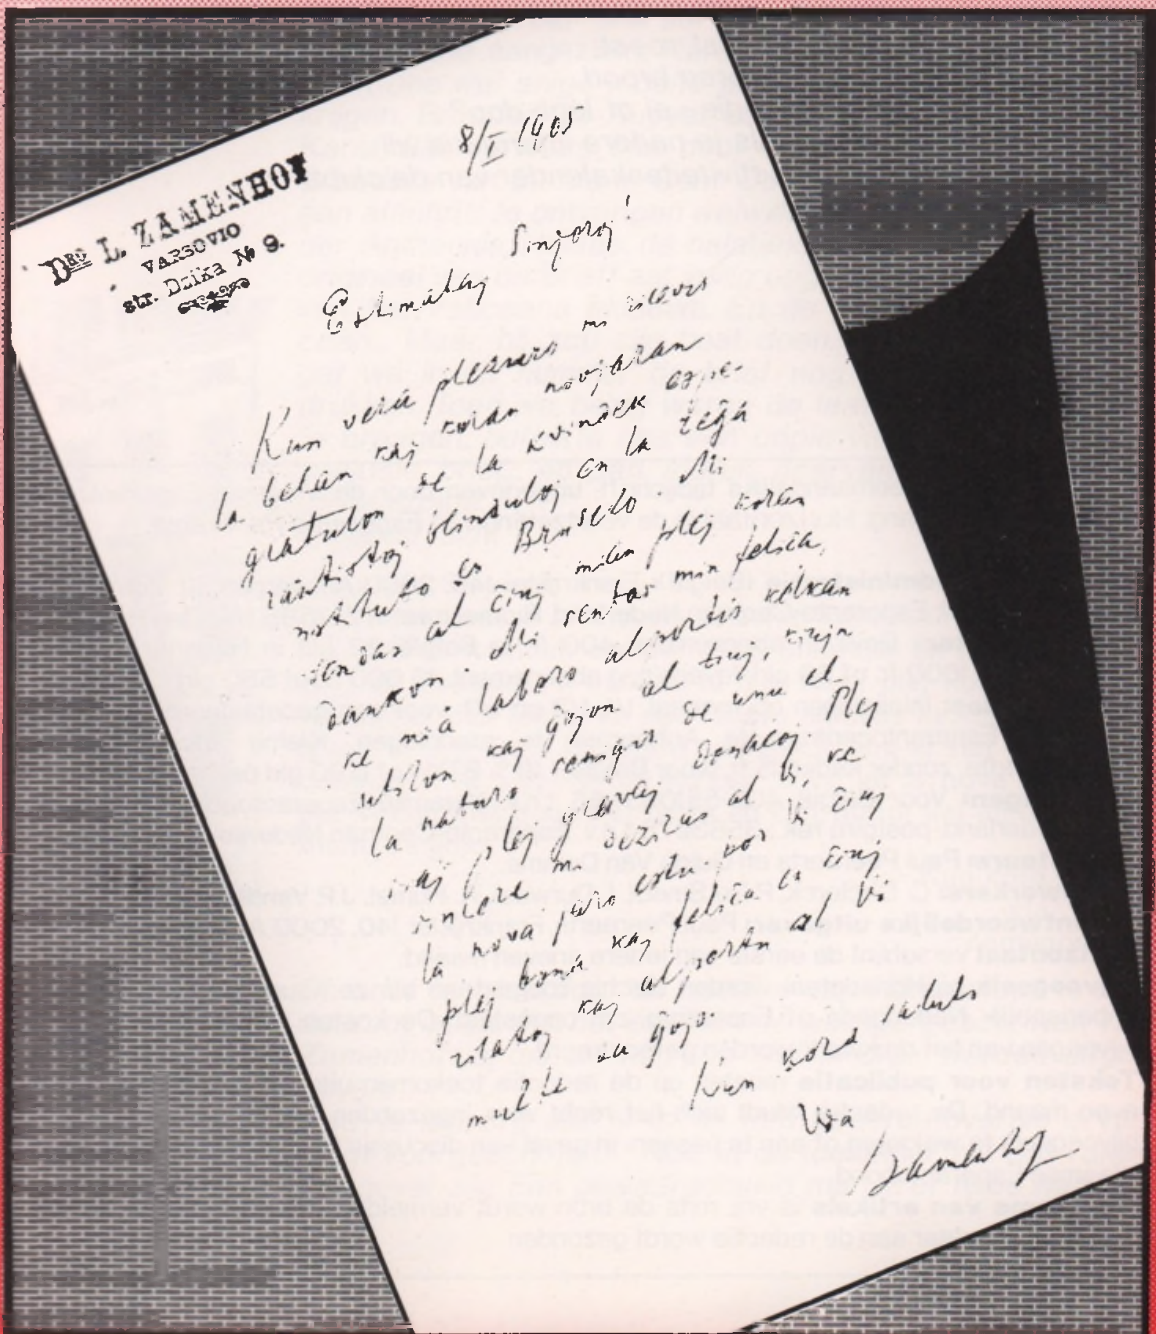 8/I 1905
Dro L. ZAMENHOF
VARSOVIO
str. Dzika № 9.
Estimataj Sinjoroj!
Kun vera plezuro mi ricevis
la belan kaj koran novjaran
gratulon de la kvindek espe-
rantistoj blinduloj en la reĝa
instituto en Bruselo. Mi
sendas al ĉiuj mian plej koran
dankon. Mi sentas min feliĉa,
ke mia laboro alportis kelkan
kaj ĝojon al tiuj, kiujn
la naturo senigis de unu el
siaj plej gravaj donacoj. Plej
sincere mi deziras al Vi, ke
la nova jaro estu por Vi ĉiuj
plej bona kaj feliĉa en ĉiuj
rilatoj kaj alportu al Vi
multe da ĝojo.
Kun kora saluto
Via
Zamenhof